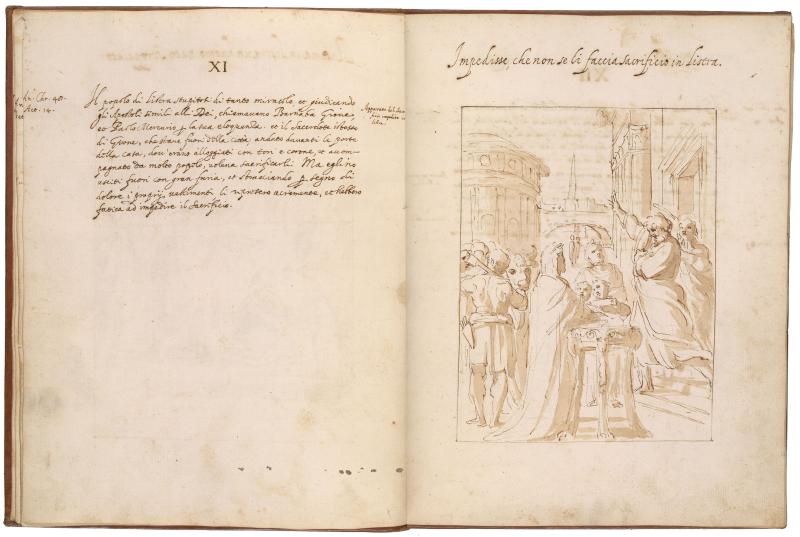 XI
An. Chr. 48.
Act. 14.
Il popolo di Listra stupitosi di tanto miracolo, et giudicando
gli Apostoli simili alli Dei, chiamavano Barnaba Giove,
et Paolo Mercurio p la sua eloquenza. et il Sacerdote istesso
di Giove, che stava fuori della città andato davanti la porta
della casa, dov' erano alloggiati con tori e corone, et accom-
pagnato da molto popolo, voleva sacrificarli. Ma egli no
usciti fuori con gran furia, et stracciando p segno di
dolore i proprij vestimenti li ripresero acremente, et hebbero
fatica ad impedire il Sacrificio.
Impedisse, che non se li faccia sacrificio in Listra.